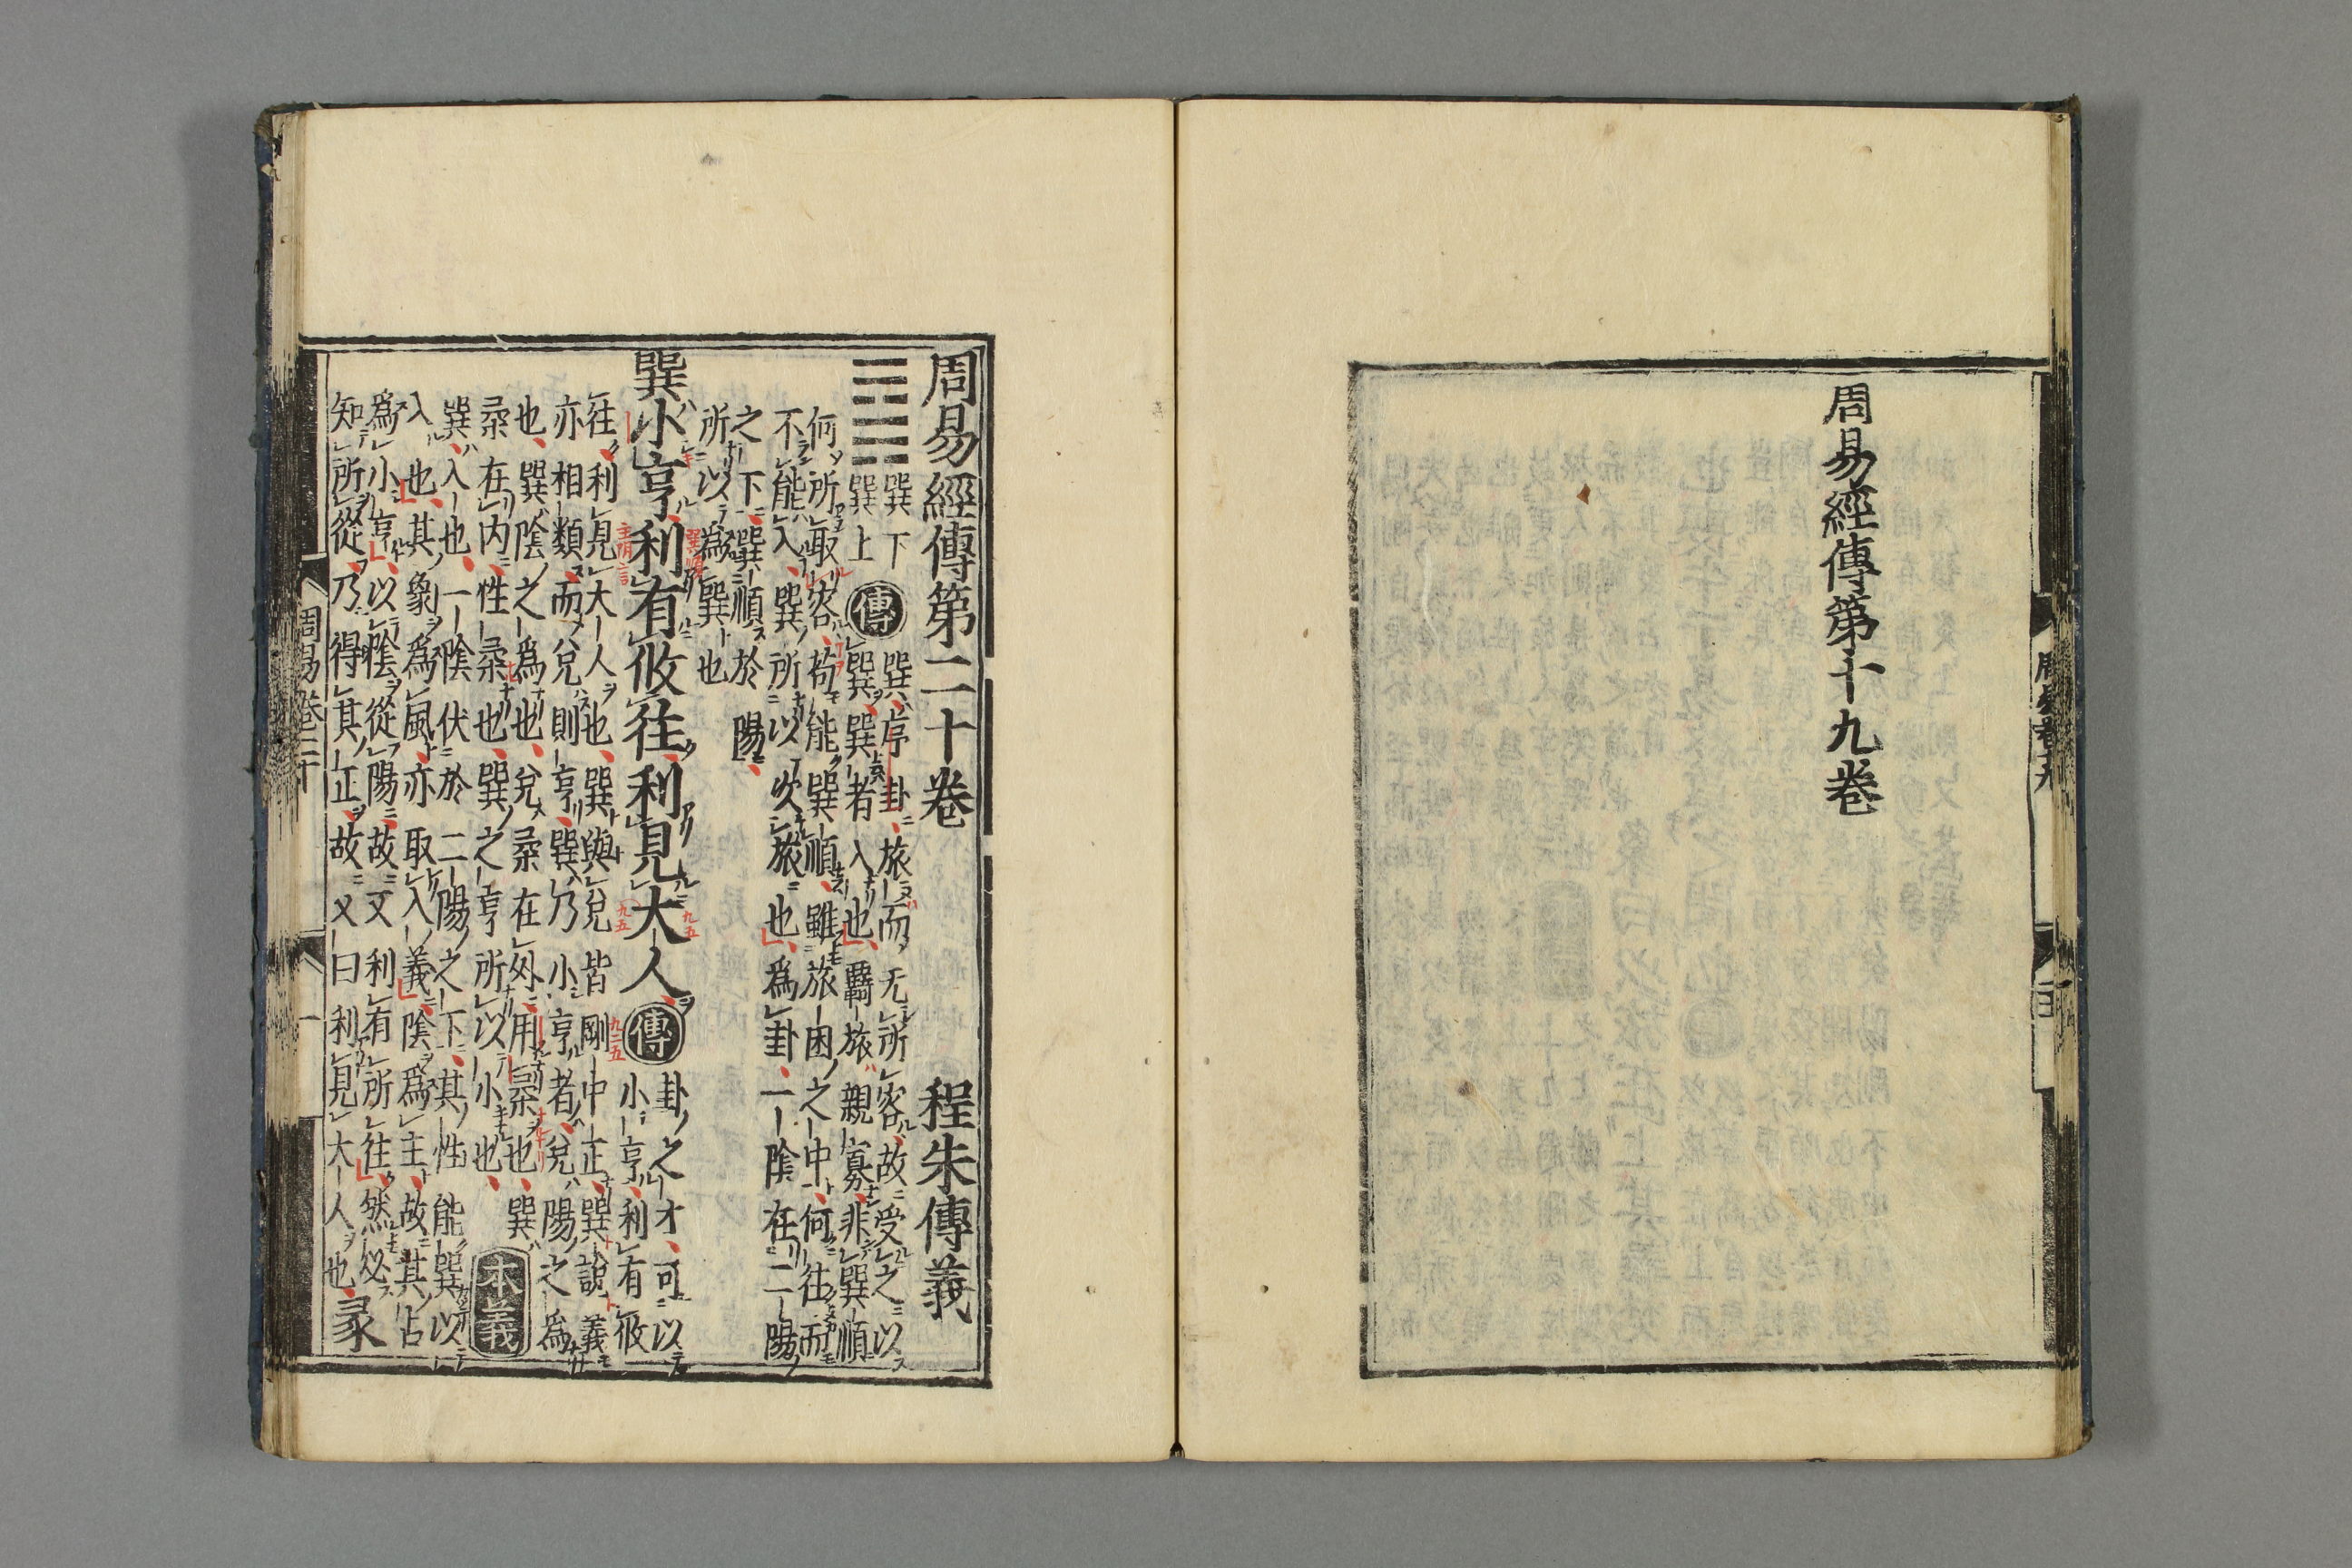 周易經傳第十九卷
周易卷十九
周易經傳第二十卷 程朱傳義
巽下
巽上
傳
巽序卦旅而无所容故受之以
巽巽者入也羇旅親寡非巽順
何所取容苟能巽順雖旅困之中何往而
不能入巽所以次旅也爲卦一陰在二陽
之下巽順於陽
所以爲巽也
巽小亨利有攸往利見大人
傳
卦之才可以
小亨利有攸
往利見大人也巽與兌皆剛中正巽說義
亦相類而兌則亨巽乃小亨者兌陽之爲
也巽陰之爲也兌柔在外用柔也巽
柔在内性柔也巽之亨所以小也
本義
巽入也一陰伏於二陽之下其性能巽以
入也其象爲風亦取入義陰爲主故其占
爲小亨以陰從陽故又利有所往然必
知所從乃得其正故又曰利見大人也彖
周易卷二十 一